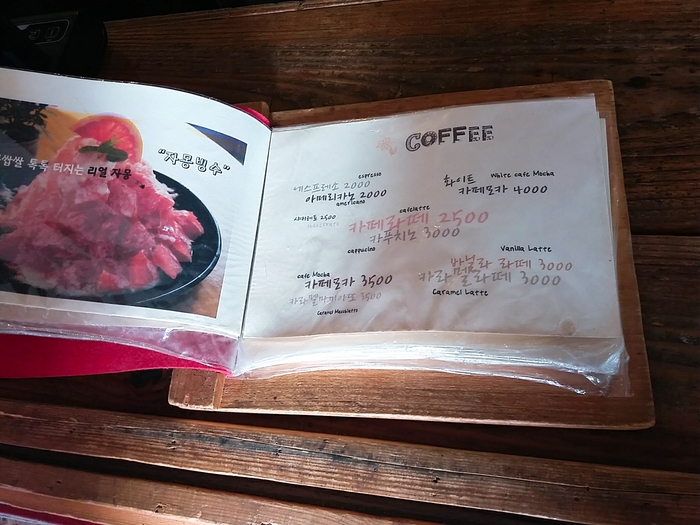 "자몽빙수"
쌉쌀 톡톡 터지는 리얼 자몽
COFFEE
espresso
에스프레소 2000
아메리카노 2000
americano
2500
cafelatte
카페라떼 2500
카푸치노 3000
cappucino
화이트 White cafe Mocha
카페모카 4000
cafe Mocha
카페모카 3500
카라멜마끼아또 3500
Caramel Macchiatto
Vanilla Latte
바닐라 라떼 3000
카라멜라떼 3000
Caramel Latte